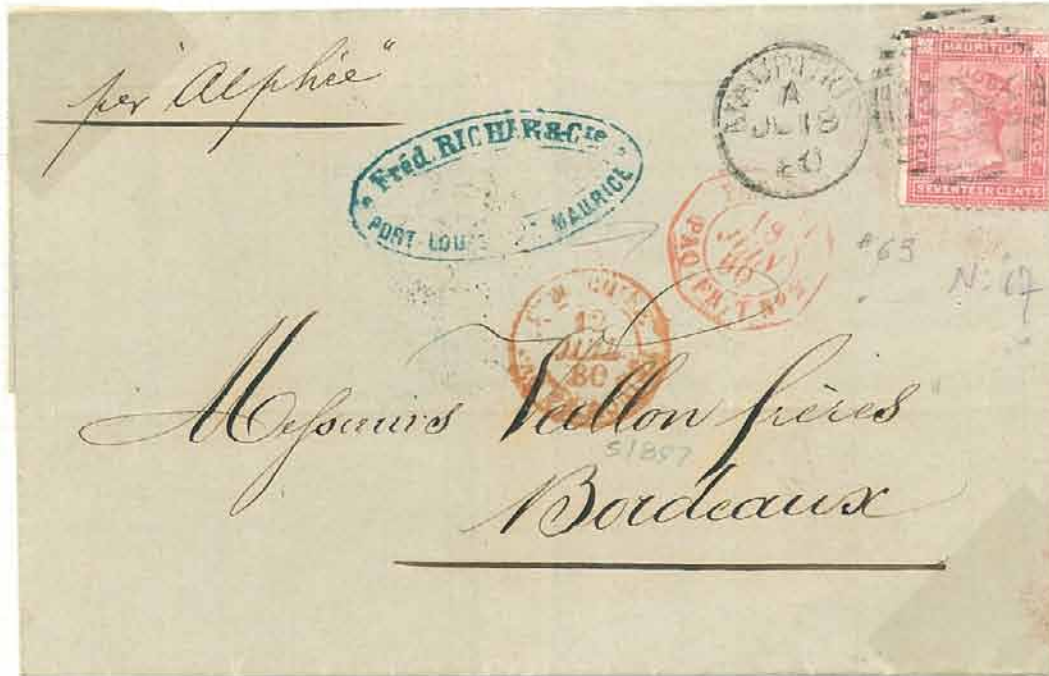 per "Alphée"
Fréd. RICHER & Cie
PORT LOUIS MAURICE
MAURITIUS
A
JU 18
80
MAURITIUS
POSTAGE
POSTAGE
SEVENTEEN CENTS
19
JUIN
80
PAQ. FR. T No 2
#69
N: 17
JUIL
80
Messieurs Vallon frères
Bordeaux
51857